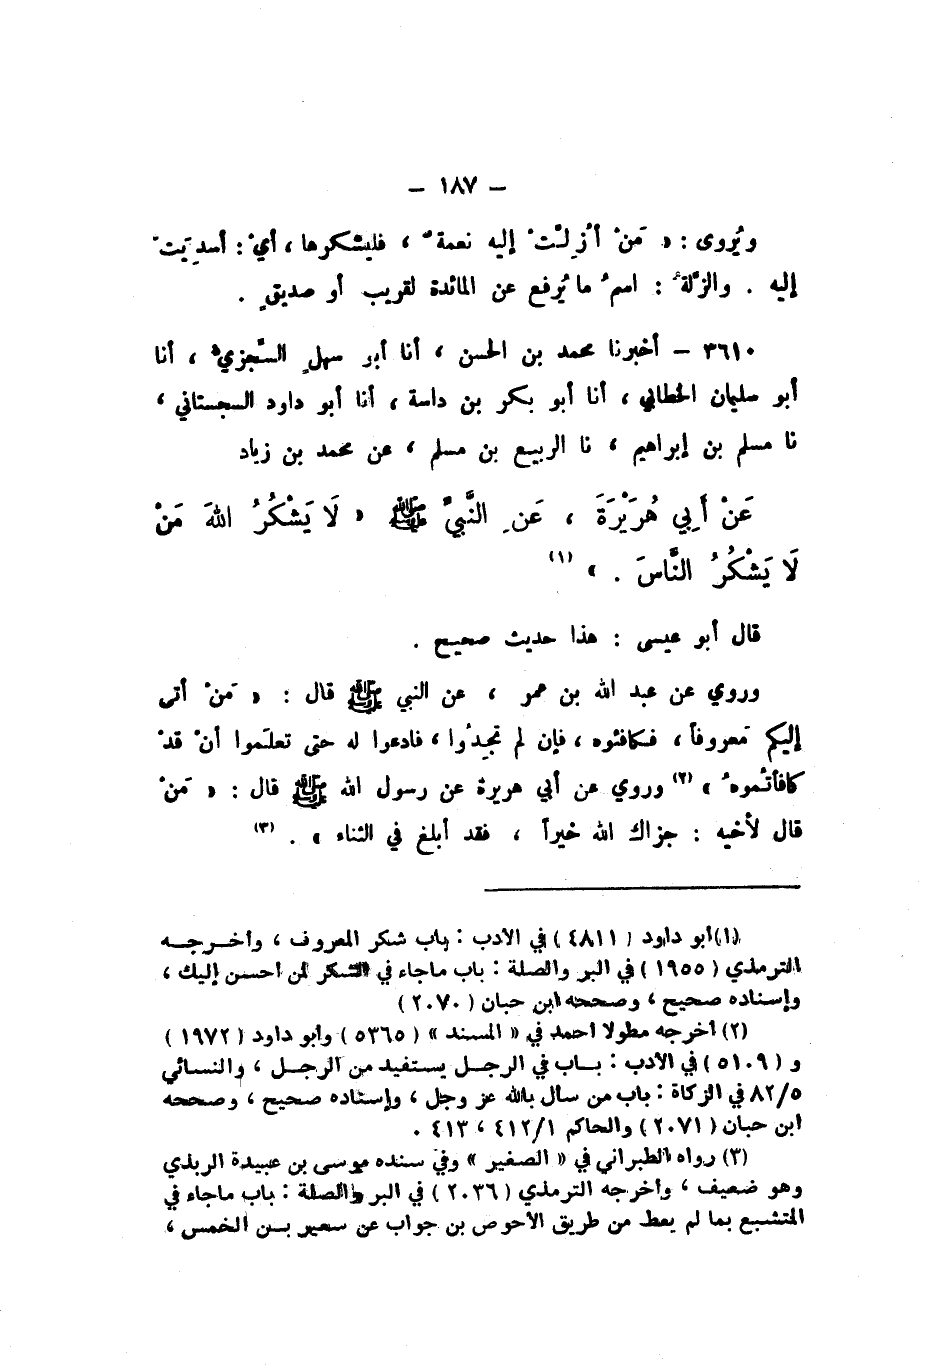 – ١٨٧ –
ويُروى : « مَنْ أُزِلَّتْ إليه نعمةٌ ، فليشكرها ، أيْ : أسدِيَتْ
إليه . والزَّلّةُ : اسمُ ما يُرفع عن المائدة لقريب أو صديقٍ .
٣٦١٠ – أخبرنا محمد بن الحسن ، أنا أبو سهلٍ السِّجزيُّ ، أنا
أبو سليمان الخطابي ، أنا أبو بكر بن داسة ، أنا أبو داود السجستاني ،
نا مسلم بن إبراهيم ، نا الربيع بن مسلم ، عن محمد بن زياد
عَنْ أَبِي هُرَيْرَةَ ، عَنِ النَّبيِّ ﷺ « لَا يَشْكُرُ اللهَ مَنْ
لَا يَشْكُرُ النَّاسَ . » (١)
قال أبو عيسى : هذا حديث صحيح .
وروي عن عبد الله بن عمر ، عن النبي ﷺ قال : « مَنْ أتى
إليكم مَعروفاً ، فكافئوه ، فإن لم تجِدُوا ، فادعوا له حتى تعلَموا أنْ قدْ
كافأتُموهُ » (٢) وروي عن أبي هريرة عن رسول الله ﷺ قال : « مَنْ
قال لأخيه : جزاك الله خيراً ، فقد أبلغ في الثناء » . (٣)
(١) أبو داود ( ٤٨١١ ) في الادب : باب شكر المعروف ، وأخرجه
الترمذي ( ١٩٥٥ ) في البر والصلة : باب ماجاء في الشكر لمن احسن إليك ،
وإسناده صحيح ، وصححه ابن حبان ( ٢٠٧٠ )
(٢) أخرجه مطولا احمد في « المسند » ( ٥٣٦٥ ) وأبو داود ( ١٩٧٢ )
و ( ٥١٠٩ ) في الادب : باب في الرجل يستفيد من الرجل ، والنسائي
٨٢/٥ في الزكاة : باب من سأل بالله عز وجل ، وإسناده صحيح ، وصححه
ابن حبان ( ٢٠٧١ ) والحاكم ٤١٢/١ ، ٤١٣ .
(٣) رواه الطبراني في « الصغير » وفي سنده موسى بن عبيدة الربذي
وهو ضعيف ، وأخرجه الترمذي ( ٢٠٣٦ ) في البر والصلة : باب ماجاء في
المتشبع بما لم يعط من طريق الاحوص بن جواب عن سعير بن الخمس ،